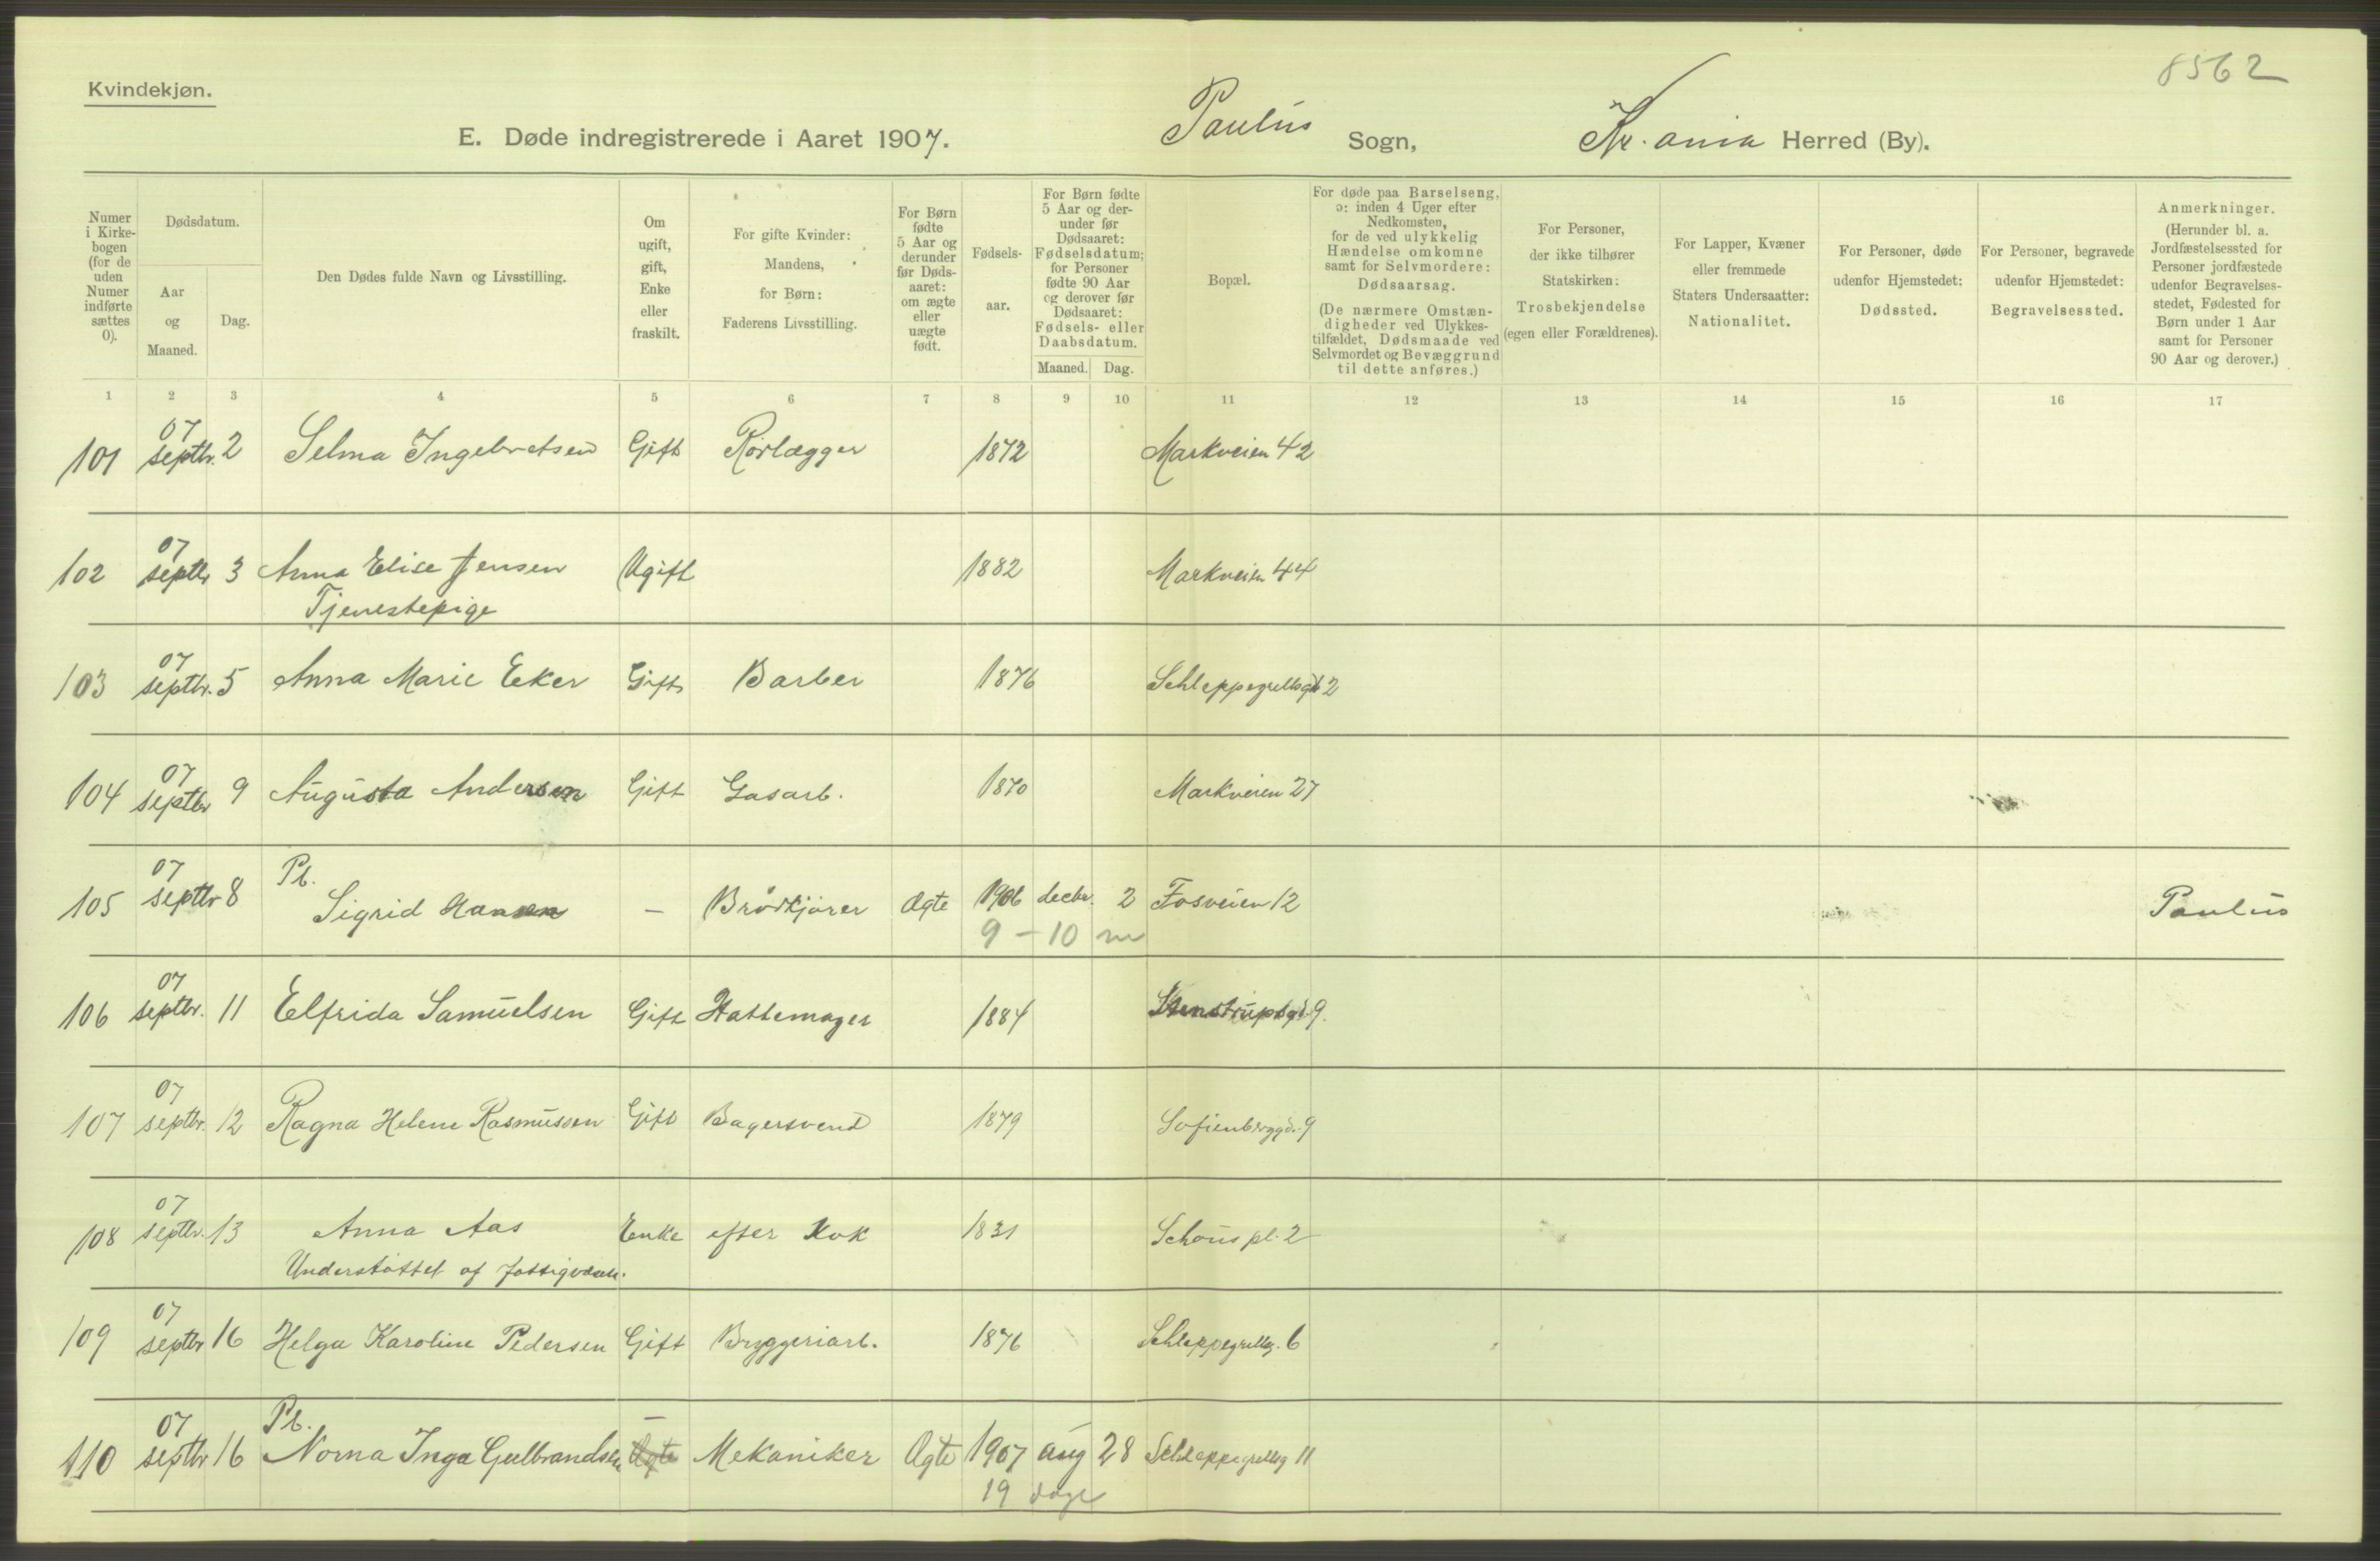 8562
Kvindekjøn.
E. Døde indregistrerede i Aaret 1907. Paulus Sogn, Kr.ania Herred (By).
Numer i Kirke- bogen (for de uden Numer indførte sættes 0).
Dødsdatum.
Aar og Maaned.
Dag.
Den Dødes fulde Navn og Livsstilling.
Om ugift, gift, Enke eller fraskilt.
For gifte Kvinder: Mandens, for Børn: Faderens Livsstilling.
For Børn fødte 5 Aar og derunder før Døds- aaret: om ægte eller uægte født.
Fødsels- aar.
For Børn fødte 5 Aar og der- under før Dødsaaret: Fødselsdatum; for Personer fødte 90 Aar og derover før Dødsaaret: Fødsels- eller Daabsdatum.
Maaned. Dag.
Bopæl.
For døde paa Barselseng, ɔ: inden 4 Uger efter Nedkomsten, for de ved ulykkelig Hændelse omkomne samt for Selvmordere: Dødsaarsag. (De nærmere Omstæn- digheder ved Ulykkes- tilfældet, Dødsmaade ved Selvmordet og Bevæggrund til dette anføres.)
For Personer, der ikke tilhører Statskirken: Trosbekjendelse (egen eller Forældrenes).
For Lapper, Kvæner eller fremmede Staters Undersaatter: Nationalitet.
For Personer, døde udenfor Hjemstedet: Dødssted.
For Personer, begravede udenfor Hjemstedet: Begravelsessted.
Anmerkninger. (Herunder bl. a. Jordfæstelsessted for Personer jordfæstede udenfor Begravelses- stedet, Fødested for Børn under 1 Aar samt for Personer 90 Aar og derover.)
1 2 3 4 5 6 7 8 9 10 11 12 13 14 15 16 17
07
101 septbr. 2 Selma Ingebretsen Gift Rørlægger 1872 Markveien 42
07
102 septbr 3 Anna Elise Jensen Ugift 1882 Markveien 44
Tjenestepige
07
103 septbr. 5 Anna Marie Eker Gift Barber 1876 Schleppegrellsgd 2
07
104 septbr 9 Augusta Andersen Gift Gasarb. 1870 Markveien 27
07 Pb.
105 septbr 8 Sigrid Hansen — Brødkjører Ægte 1906 decbr. 2 Fosveien 12 Paulus
9 – 10 m
07
106 septbr. 11 Elfrida Samuelsen Gift Hattemager 1884 Stenstrupsgd. 9.
07
107 septbr. 12 Ragna Helene Rasmussen Gift Bagersvend 1879 Sofienberggd. 9
07
108 septbr. 13 Anna Aas Enke efter Kok 1831 Schous pl. 2
Understøttet af Fattigvæs.
07
109 septbr 16 Helga Karoline Pedersen Gift Bryggeriarb. 1876 Schleppegrellsg. 6
07 Pb. —
110 septbr 16 Norna Inga Gulbrandsen Ægte Mekaniker Ægte 1907 aug 28 Schleppegrellsg 11
19 dage